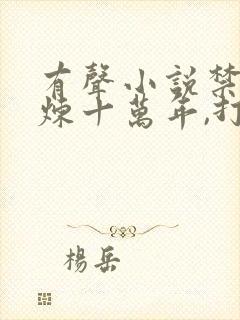 有聲小說禁
煉十萬年,打
楊岳